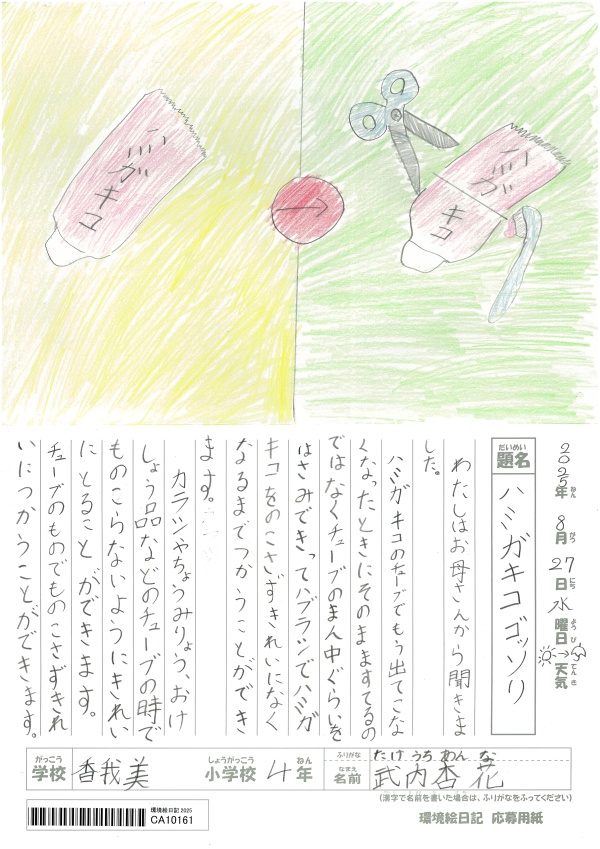 ハミガキコ
ハミガキコ
2025年 8月 27日 水曜日 天気
ねん がつ にち ようび てんき
だいめい
題名 ハミガキコゴッソリ
わたしはお母さんから聞きま
した。
ハミガキコのチューブでもう出てこな
くなったときにそのまますてるの
ではなくチューブのまん中ぐらいを
はさみできってハブラシでハミガ
キコをのこさずきれいになく
なるまでつかうことができ
ます。
カラシやちょうみりょう、おけ
しょう品などのチューブの時で
ものこらないようにきれい
にとることができます。
チューブのものでものこさずきれ
いにつかうことができます。
がっこう しょうがっこう ねん
学校 香我美 小学校 4年
ふりがな たけうち あんな
なまえ
名前 武内杏花
(漢字で名前を書いた場合は、ふりがなをふってください)
環境絵日記2025
CA10161
環境絵日記 応募用紙